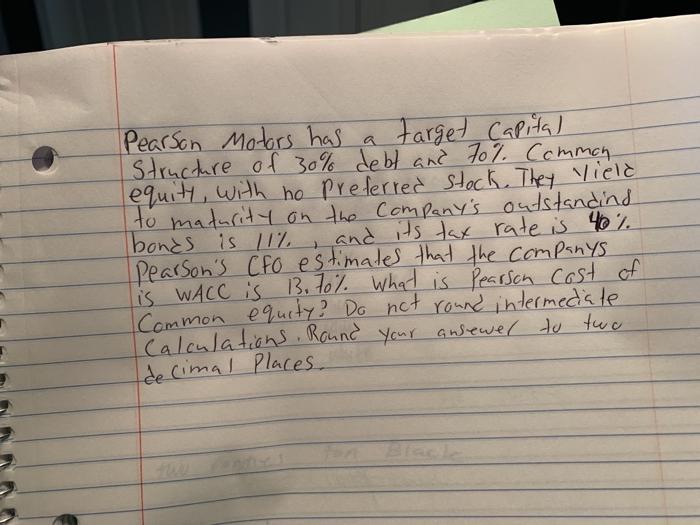 Pearson Motors has a target Capital
Structure of 30% debt and 70% Common
equity, with no Preferred Stock. They Yield
to maturity on the Company's outstanding
bonds is 11%, and its tax rate is 40%.
Pearson's CFO estimates that the companys
is WACC is 13.70%. What is Pearson Cost of
Common equity? Do not round intermediate
Calculations. Round your ansewer to two
decimal Places.
two tan Black